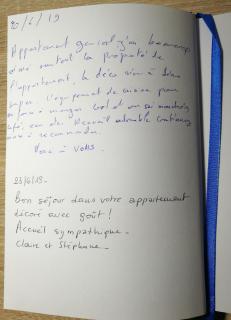 20/6/19
Appartement genial j'ai beaucoup
aimé surtout la propreté de
l'appartement, la déco
super. L'équipement de cuisine pour
à manger
café, Accueil adorable continuez
à recommander.
Merci à vous.
23/6/19 -
Bon séjour dans votre appartement
décoré avec goût !
Accueil sympathique -
Claire et Stéphane -